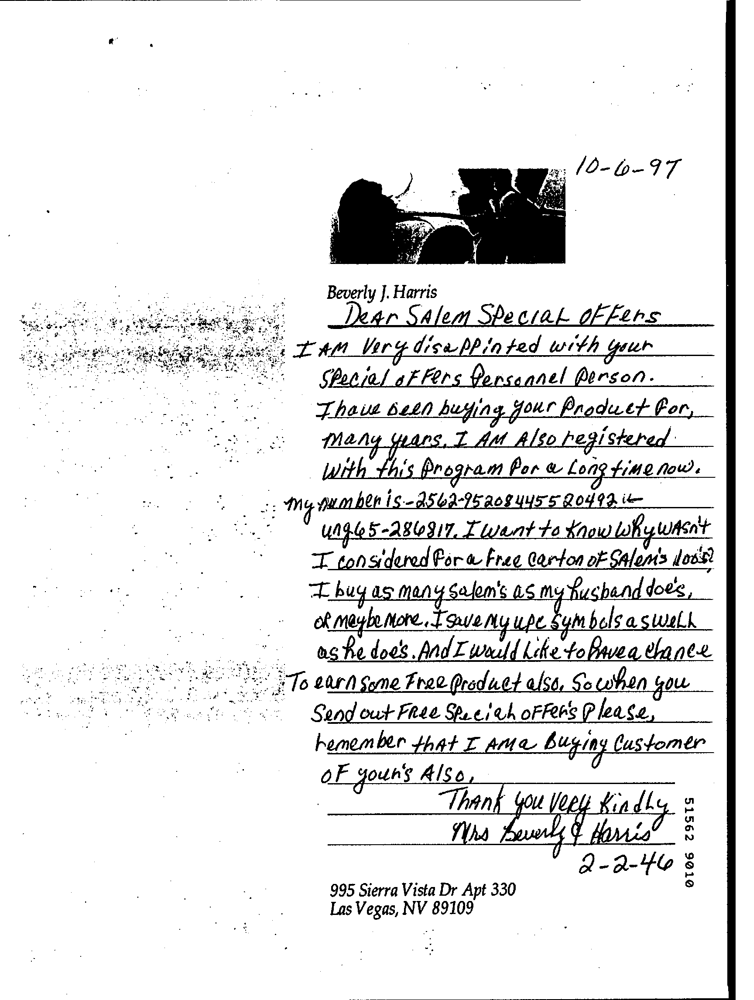 10-6-97
Beverly J. Harris
Dear Salem Special Offers
I AM Very disappinted with your
Special offers Personnel person.
I have been buying your Product for,
many years. I AM Also registered
with this Program for a Long time now.
my number is-2562-95208445520492
ung65-286817. I want to know why wasn't
I considered for a free carton of SAlem's 100's?
I buy as many salem's as my husband doe's,
or maybe More. I save My upc symbols as well
as he doe's. And I would Like to have a chance
To earn some Free Product also. So when you
Send out FREE Special offer's Please,
remember that I AM a Buying Customer
of your's Also,
Thank you Very Kindly
Mrs Beverly J Harris
2-2-46
995 Sierra Vista Dr Apt 330
Las Vegas, NV 89109
51562 9010